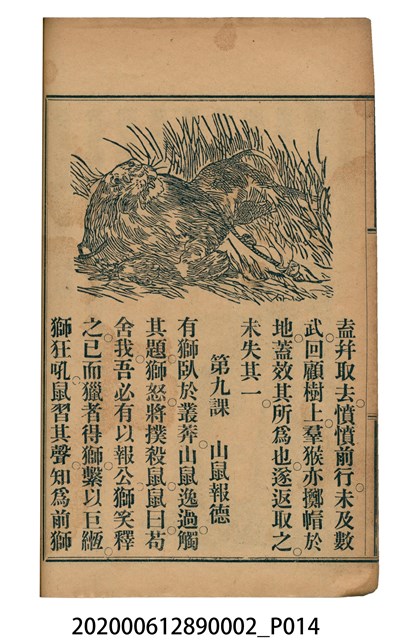 盍幷取去憤憤前行未及數
武回顧樹上羣猴亦擲帽於
地蓋效其所爲也遂返取之
未失其一
第九課　山鼠報德
有獅臥於叢莽山鼠逸過觸
其題獅怒將撲殺鼠鼠曰苟
舍我吾必有以報公獅笑釋
之已而獵者得獅繫以巨緪
獅狂吼鼠習其聲知爲前獅
202000612890002_P014